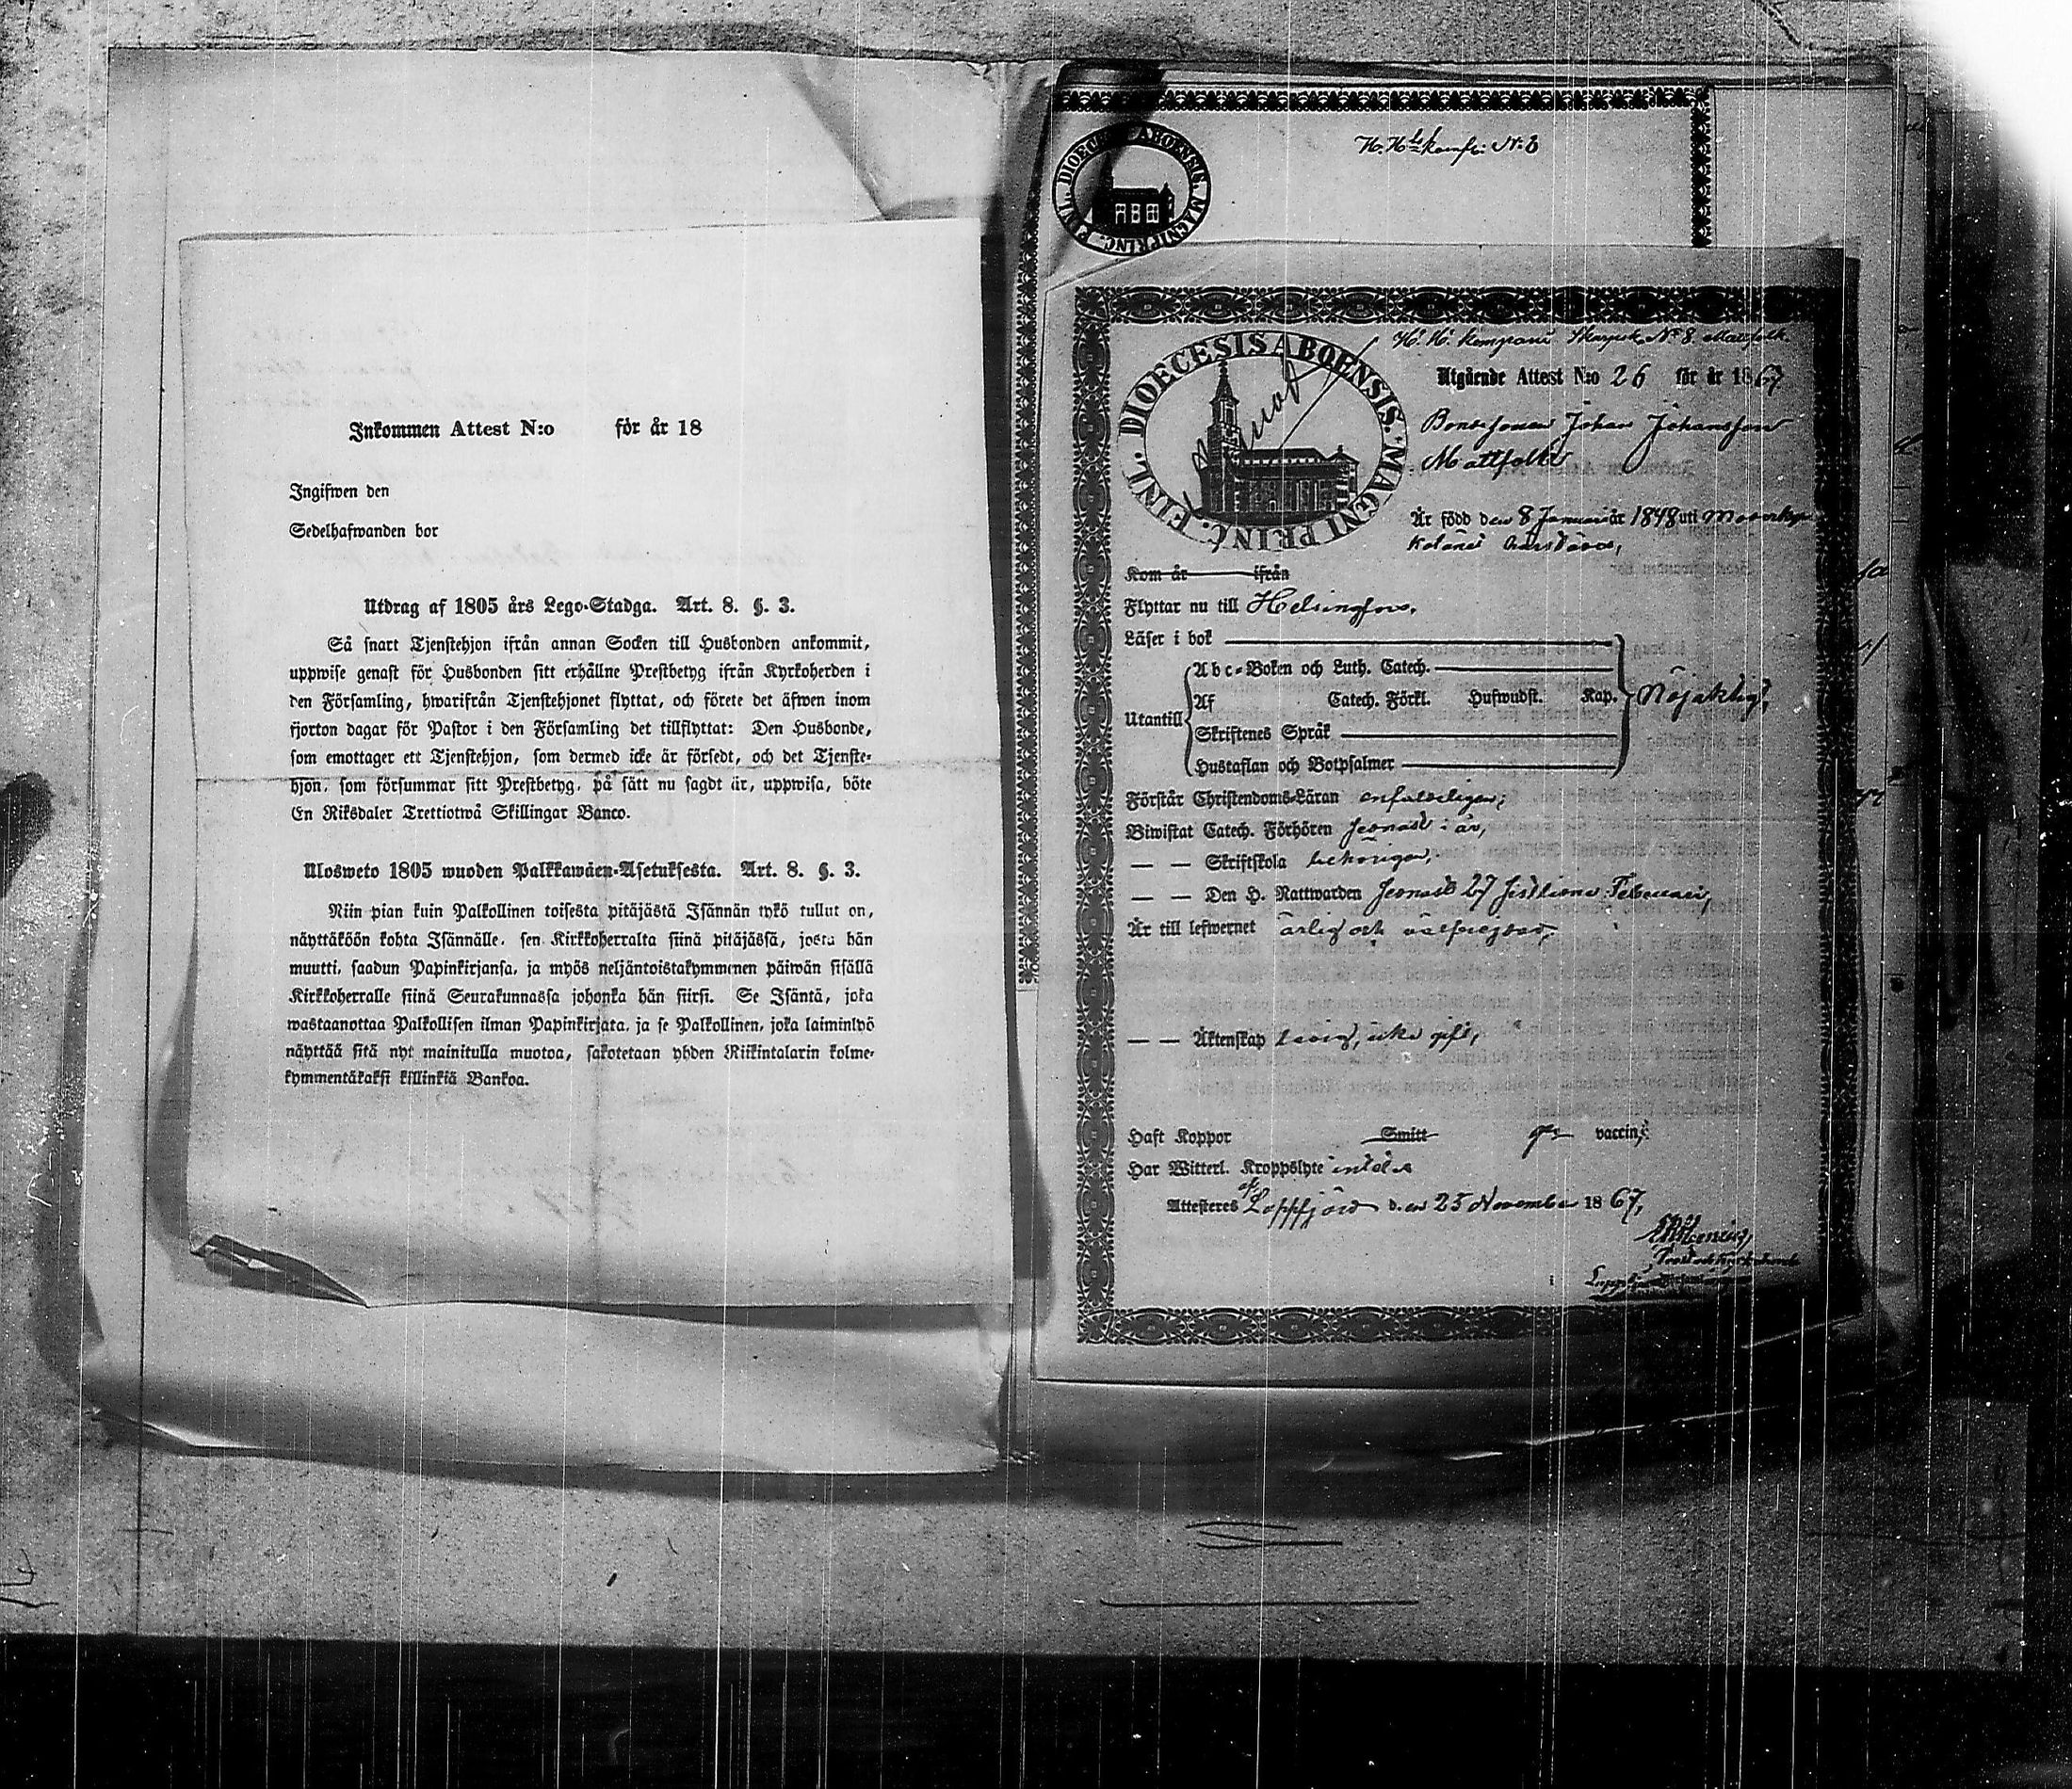 Inkommen Attest N:o för år 18
Ingifwen den
Sedelhafwanden bor
Utdrag af 1805 års Lego-Stadga. Art. 8. §. 3.
Så snart Tjenstehjon ifrån annan Socken till Husbonden ankommit,
uppwise genast för Husbonden sitt erhållne Prestbetyg ifrån Kyrkoherden i
den Församling, hwarifrån Tjenstehjonet flyttat, och förete det äfwen inom
fjorton dagar för Pastor i den Församling det tillflyttat: Den Husbonde,
som emottager ett Tjenstehjon, som dermed icke är försedt, och det Tjenste-
hjon, som försummar sitt Prestbetyg, på sätt nu sagdt är, uppwisa, böte
En Riksdaler Trettiotwå Skillingar Banco.
Ulosweto 1805 wuoden Palkkawäen-Asetuksesta. Art. 8. §. 3.
Niin pian kuin Palkollinen toisesta pitäjästä Isännän tykö tullut on,
näyttäköön kohta Isännälle, sen Kirkkoherralta siinä pitäjässä, josta hän
muutti, saadun Papinkirjansa, ja myös neljäntoistakymmenen päiwän sisällä
Kirkkoherralle siinä Seurakunnassa johonka hän siirsi. Se Isäntä, joka
wastaanottaa Palkollisen ilman Papinkirjata, ja se Palkollinen, joka laiminlyö
näyttää sitä nyt mainitulla muotoa, sakotetaan yhden Riikintalarin kolme-
kymmentäkaksi killinkiä Bankoa.
DIOECESIS ABOENSIS. MAGNI PRINC. FINL.
N:o 8
DIOECESIS ABOENSIS. MAGNI PRINC. FINL.
H. H. kompani Skarpsk. N:o 8. Mattfolk
Utgående Attest N:o 26 för år 1867
Bondesonen Johan Johansson
Mattfolk
Är född den 8 Januari år 1848 uti
Kom år ifrån
Flyttar nu till Helsingfors,
Läser i bok
Abc-Boken och Luth. Catech.
Utantill Af Catech. Förkl. Hufwudst. Kap. Nöjaktigt,
Skriftenes Språk
Hustaflan och Botpsalmer
Förstår Christendoms-Läran enfaldeligen;
Biwistat Catech. Förhören senast i år,
— — Skriftskola behörigen,
— — Den H. Nattwarden senast 27 sistlidne Februari,
Är till lefwernet ärlig och välfrejdad,
— — Äktenskap ledig, icke gift,
Haft Koppor Smitt vaccin;
Har Witterl. Kroppslyte
Attesteres af Lappfjärd den 25 November 1867,